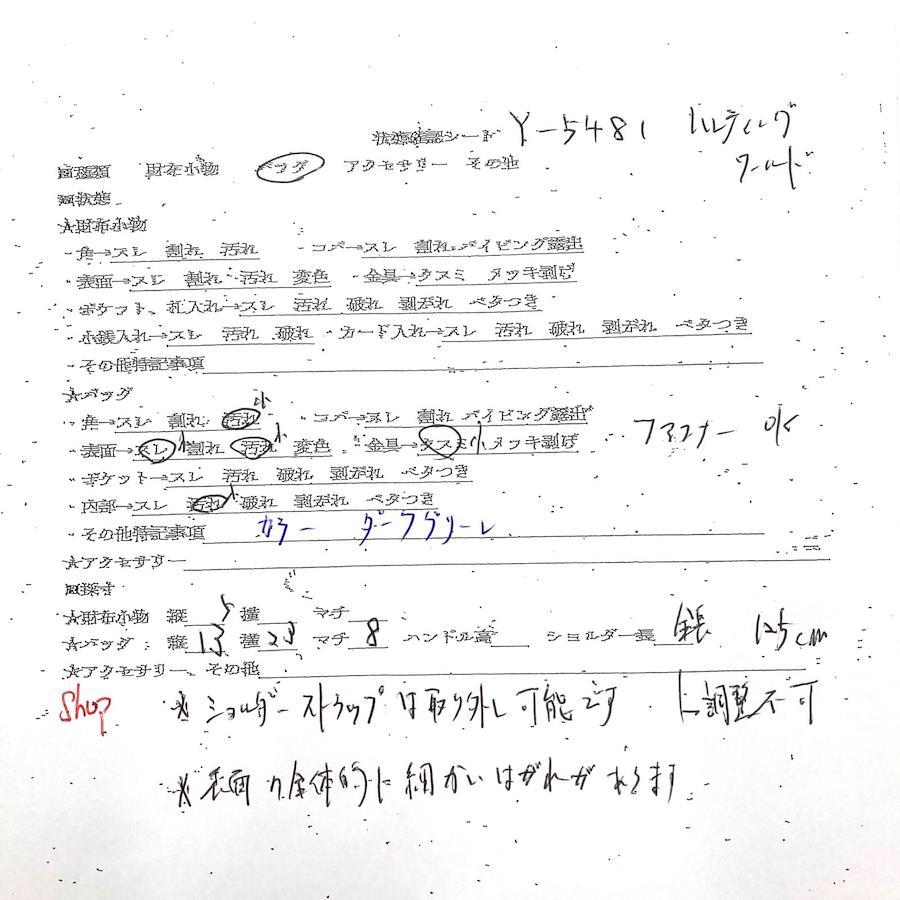 状態確認シート Y-5481 ハンティング
ワールド
■種類 財布小物 バッグ アクセサリー その他
■状態
★財布小物
・角→スレ 割れ 汚れ ・コバ→スレ 割れ パイピング露出
・表面→スレ 割れ 汚れ 変色 ・金具→クスミ メッキ剥げ
・ポケット、札入れ→スレ 汚れ 破れ 剥がれ ベタつき
・小銭入れ→スレ 汚れ 破れ ・カード入れ→スレ 汚れ 破れ 剥がれ ベタつき
・その他特記事項
★バッグ
・角→スレ 割れ 汚れ小 ・コバ→スレ 割れ パイピング露出
・表面→スレ小 割れ 汚れ小 変色 ・金具→クスミ小 メッキ剥げ ファスナー OK
・ポケット→スレ 汚れ 破れ 剥がれ ベタつき
・内部→スレ 汚れ小 破れ 剥がれ ベタつき
・その他特記事項 カラー ダークグリーン
★アクセサリー
■採寸
★財布小物 縦 横 マチ
★バッグ: 縦 13 横 23 マチ 8 ハンドル高 ショルダー長 全長 125cm
★アクセサリー、その他
Shop ★ショルダーストラップは取り外し可能です 調整不可
★表面の全体的に細かいはがれがあります